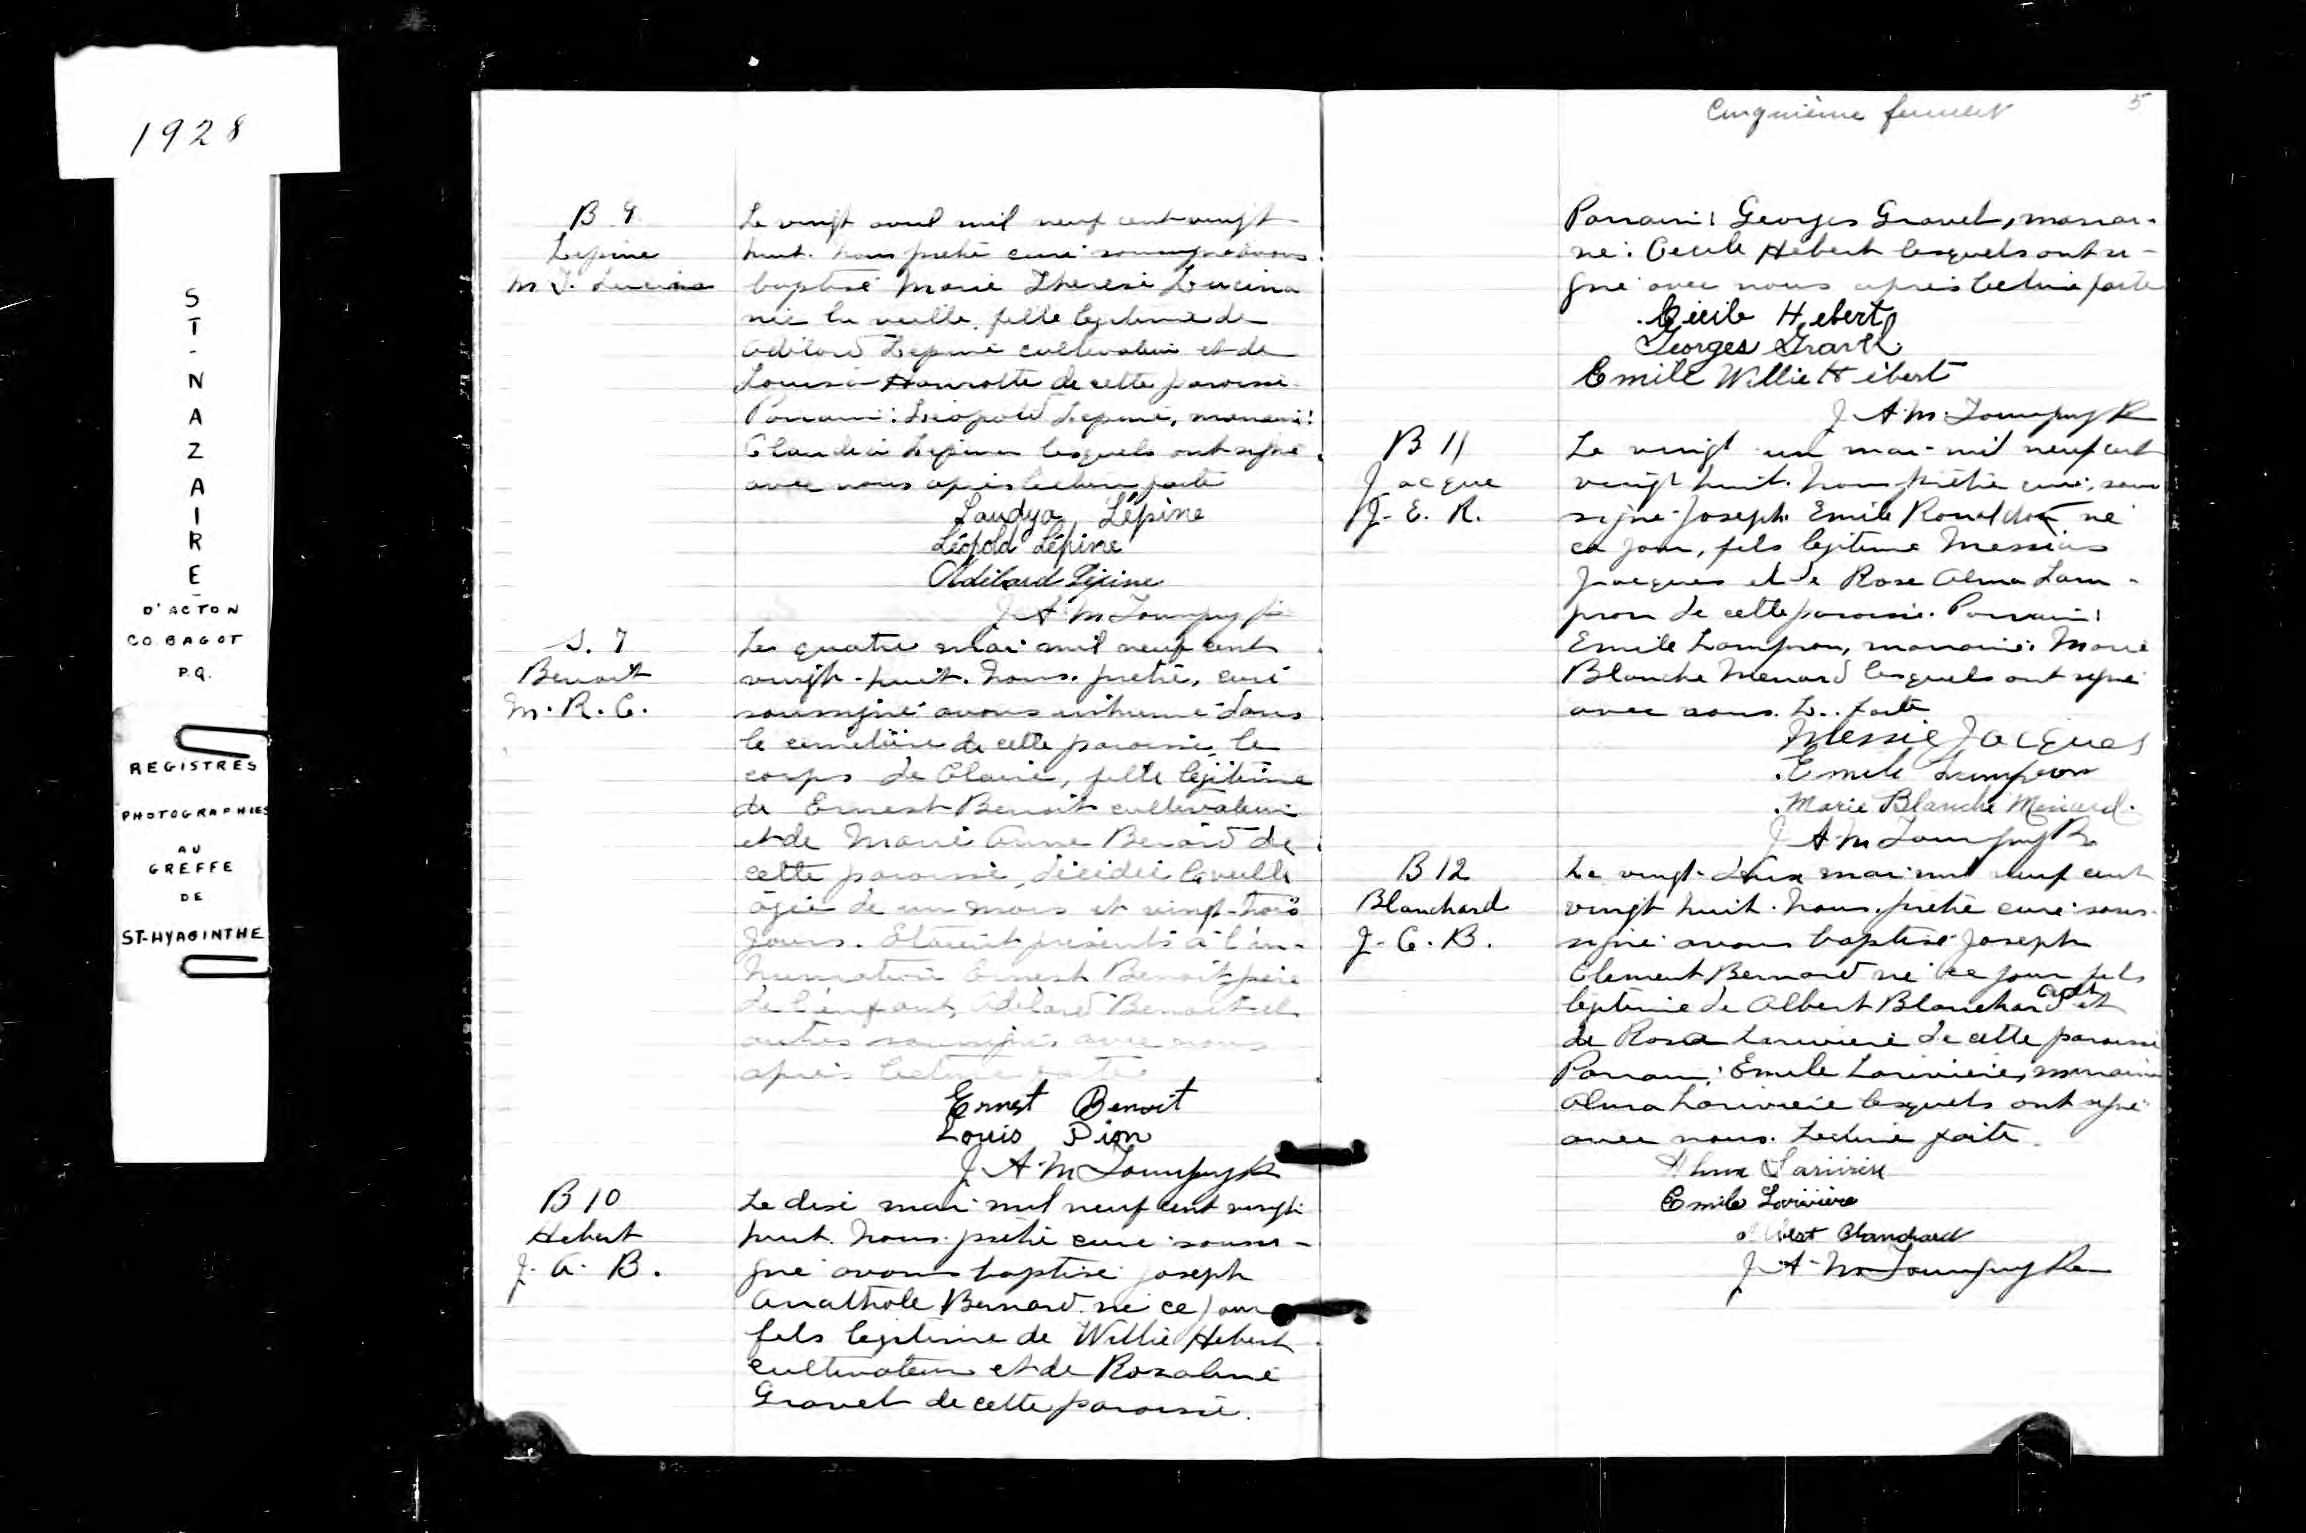 1928
ST-NAZAIRE
D'ACTON
CO. BAGOT
P.Q.
REGISTRES
PHOTOGRAPHIES
AU
GREFFE
DE
ST-HYACINTHE
B 9
Lepine
M. T. Lucina
Le vingt avril mil neuf cent vingt-
huit. Nous pretre curé soussigné avons
baptisé Marie Therese Lucina
née la veille, fille legitime de
Adilard Lepine cultivateur et de
Louisa de cette paroisse.
Parrain: Léopold Lepine, marraine:
Claudia Lepine lesquels ont signé
avec nous après lecture faite
Laudya Lépine
Léopold Lépine
Adilard Lépine
J. A. M.
S. 7
Benoit
M. R. C.
Le quatre mai mil neuf cent
vingt-huit. Nous, pretre, curé
soussigné avons inhumé dans
le cimetière de cette paroisse, le
corps de Claire, fille légitime
de Ernest Benoit cultivateur
et de Marie Anne Benard de
cette paroisse, décédée la veille
âgée de un mois et vingt-trois
jours. Etaient présents à l'in-
humation Ernest Benoit père
de l'enfant, Adelard Benoit et
autres soussignés avec nous
après lecture faite
Ernest Benoit
Louis Dion
J. A. M.
B 10
Hebert
J. A. B.
Le dix mai mil neuf cent vingt-
huit. Nous pretre curé soussi-
gné avons baptisé Joseph
Anathole Bernard né ce jour
fils legitime de Willie Hebert
cultivateur et de Rosaline
Gravel de cette paroisse.
Cinquième feuillet
5
Parrain: Georges Gravel, marrai-
ne: Cecile Hebert lesquels ont si-
gné avec nous après lecture faite
Cécile Hebert
Georges Gravel
Emile Willie Hébert
J. A. M.
B 11
Jacque
J. E. R.
Le vingt un mai mil neuf cent
vingt huit. Nous prêtre curé, sous
signé Joseph Emile né
ce jour, fils legitime Messias
Jacques et de Rose Alma Lam-
pron de cette paroisse. Parrain:
Emile Lampron, marraine: Marie
Blanche Menard lesquels ont signé
avec nous. L.. faite
Messie Jacques
Emile Lampron
Marie Blanche Ménard.
J. A. M.
B 12
Blanchard
J. C. B.
Le vingt-deux mai mil neuf cent
vingt huit. Nous, pretre curé sous-
signé avons baptisé Joseph
Clement Bernard né ce jour fils
legitime de Albert Blanchard cult et
de Rosa Lariviere de cette paroisse
Parrain: Emile Lariviere, marraine
Alma Lariviere lesquels ont signé
avec nous. Lecture faite.
Alma Larivière
Emile Larivière
Albert Blanchard
J. A. M.